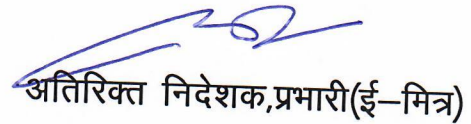 अतिरिक्त निदेशक,प्रभारी(ई–मित्र)